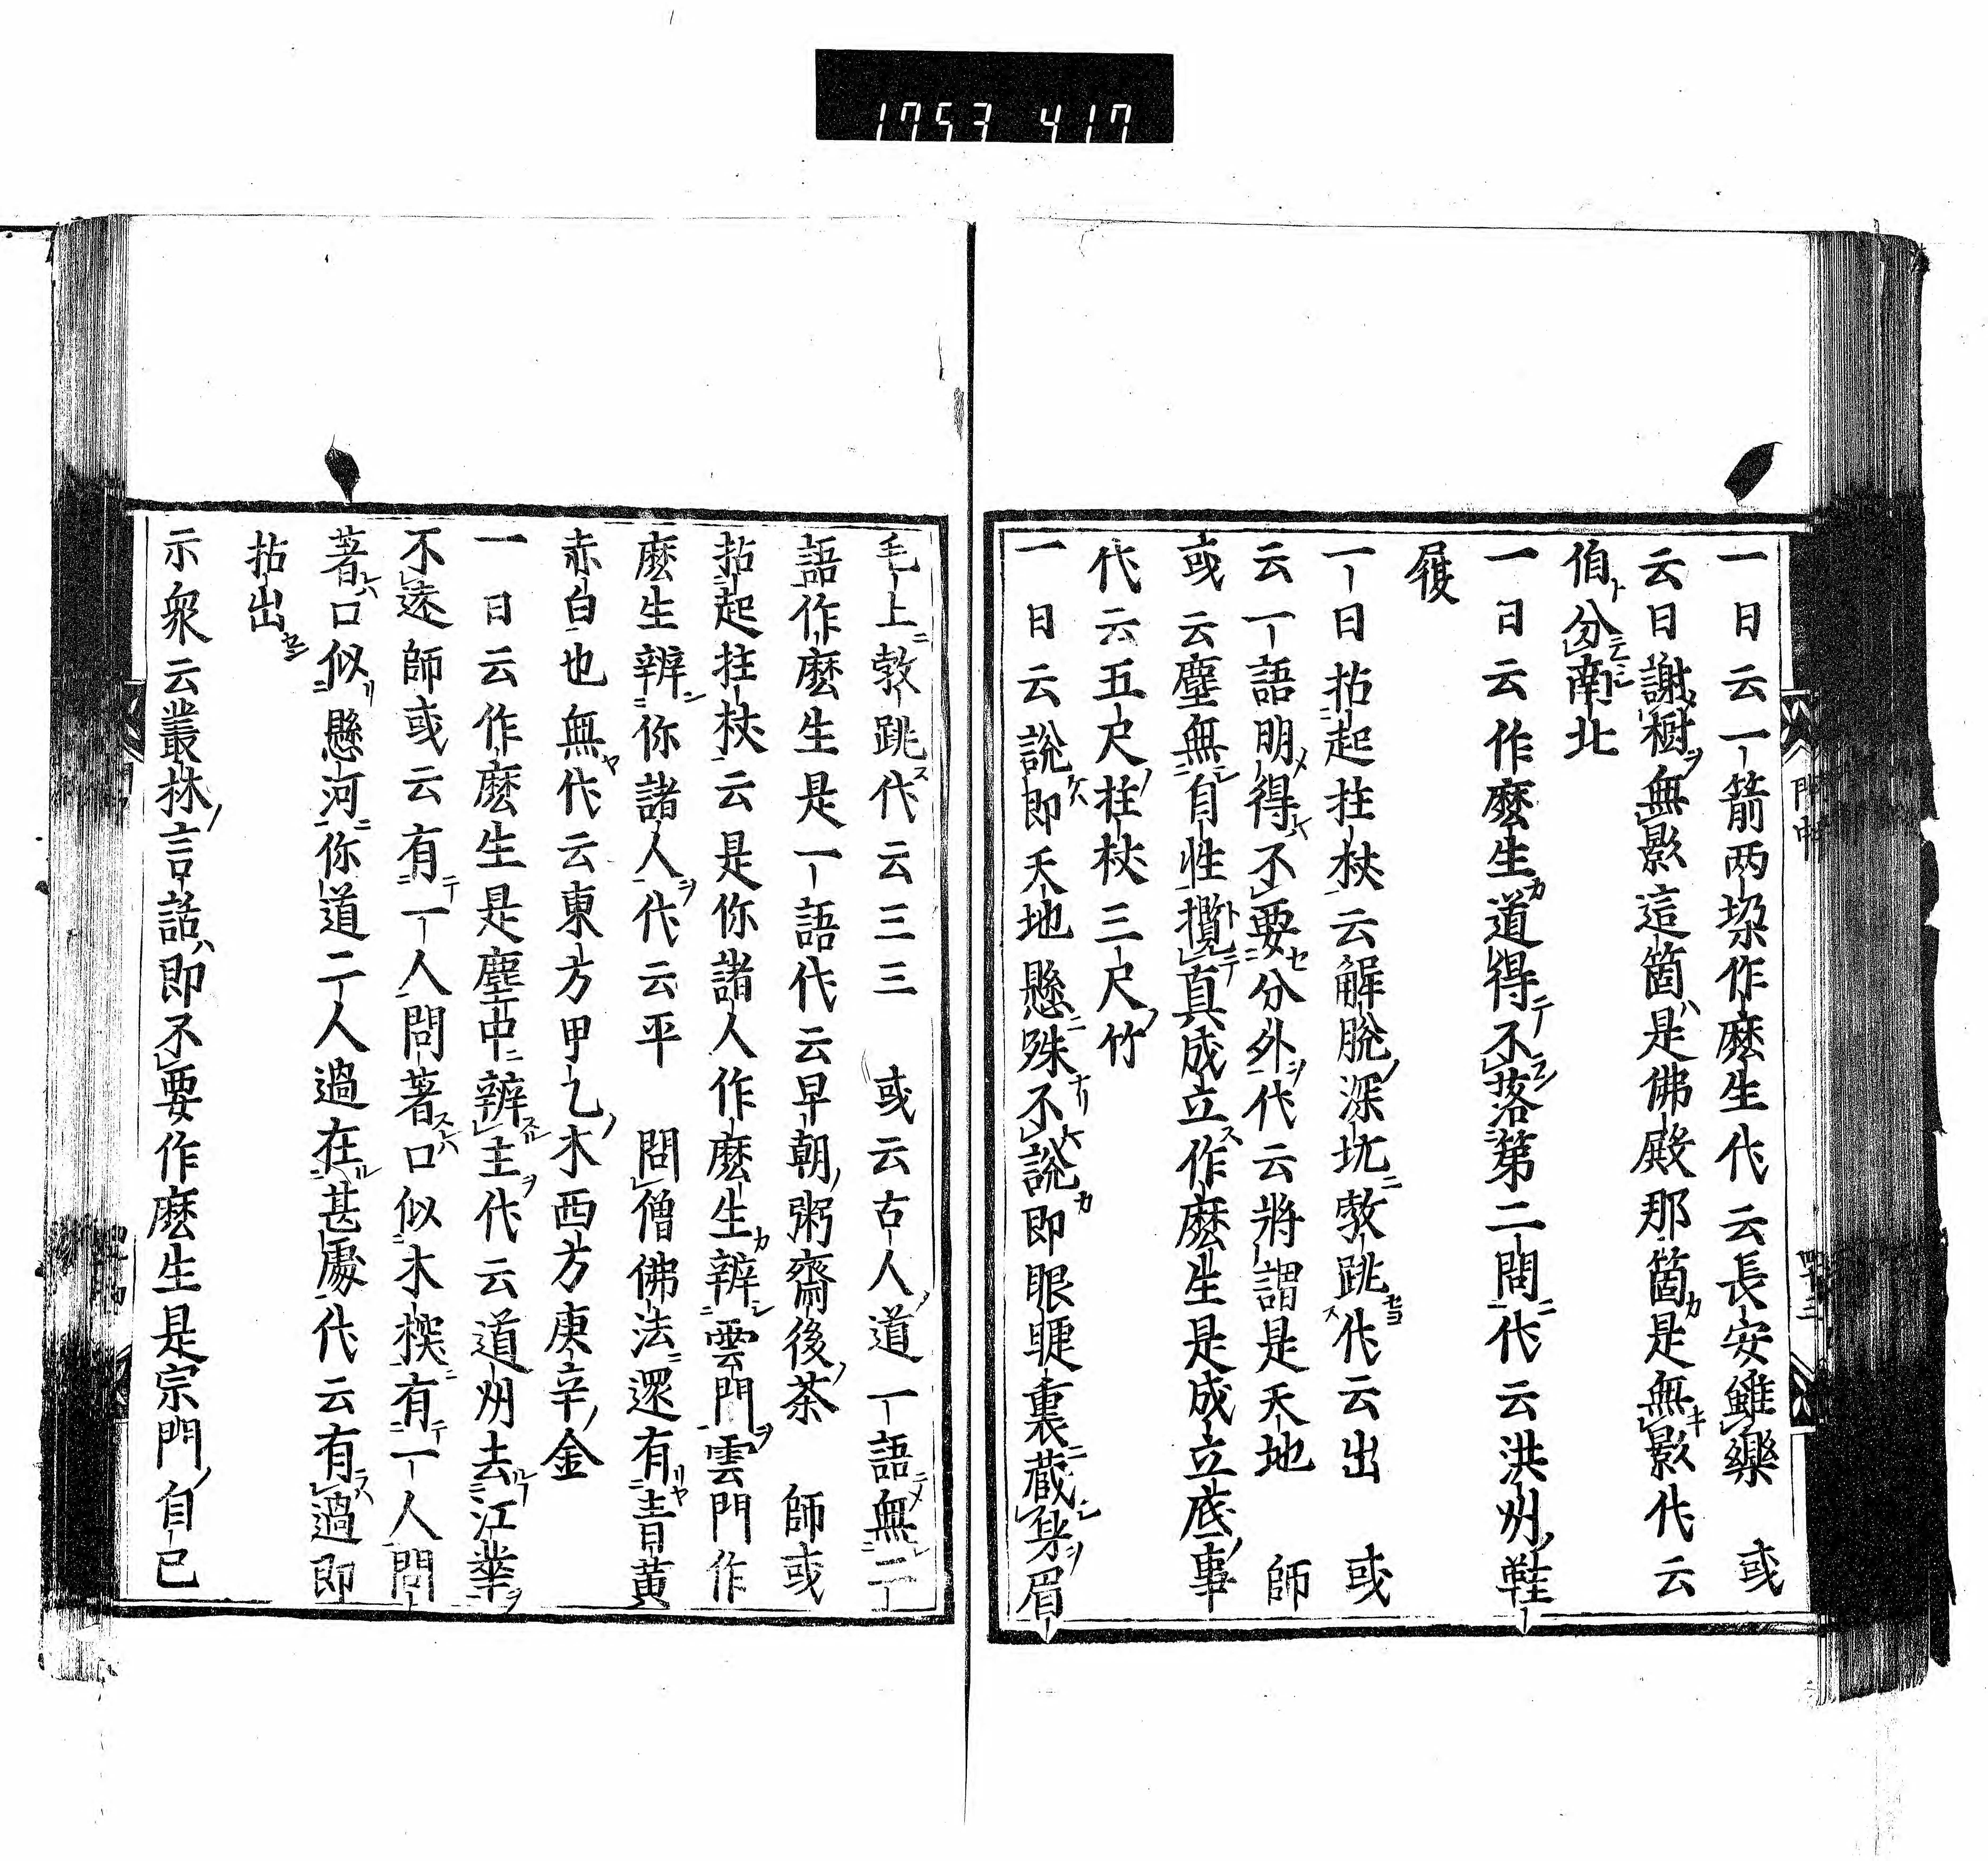 1753 417
一日云一箭兩垜作麼生代云長安雖樂　或
云日謝樹無影這箇是佛殿那箇是無影代云
伯分南北
一日云作麼生道得不落第二問代云洪州鞋
屐
一日拈起拄杖云解脫深坑𨁝跳代云出　或
云一語明得不要分外代云將謂是天地　師
或云塵無自性攬真成立作麼生是成立底事
代云五尺拄杖三尺竹
一日云說即天地懸殊不說即眼睫裏藏身眉
毛上𨁝跳代云三三　或云古人道一語無二
語作麼生是一語代云早朝粥齋後茶　師或
拈起拄杖云是你諸人作麼生辨雲門雲門作
麼生辨你諸人代云平　問僧佛法還有青黃
赤白也無代云東方甲乙木西方庚辛金
一日云作麼生是塵中辨主代云道州去江華
不遠師或云有一人問著口似木楔有一人問
著口似懸河你道二人過在甚處代云有過即
拈出
示衆云叢林言話即不要作麼生是宗門自己